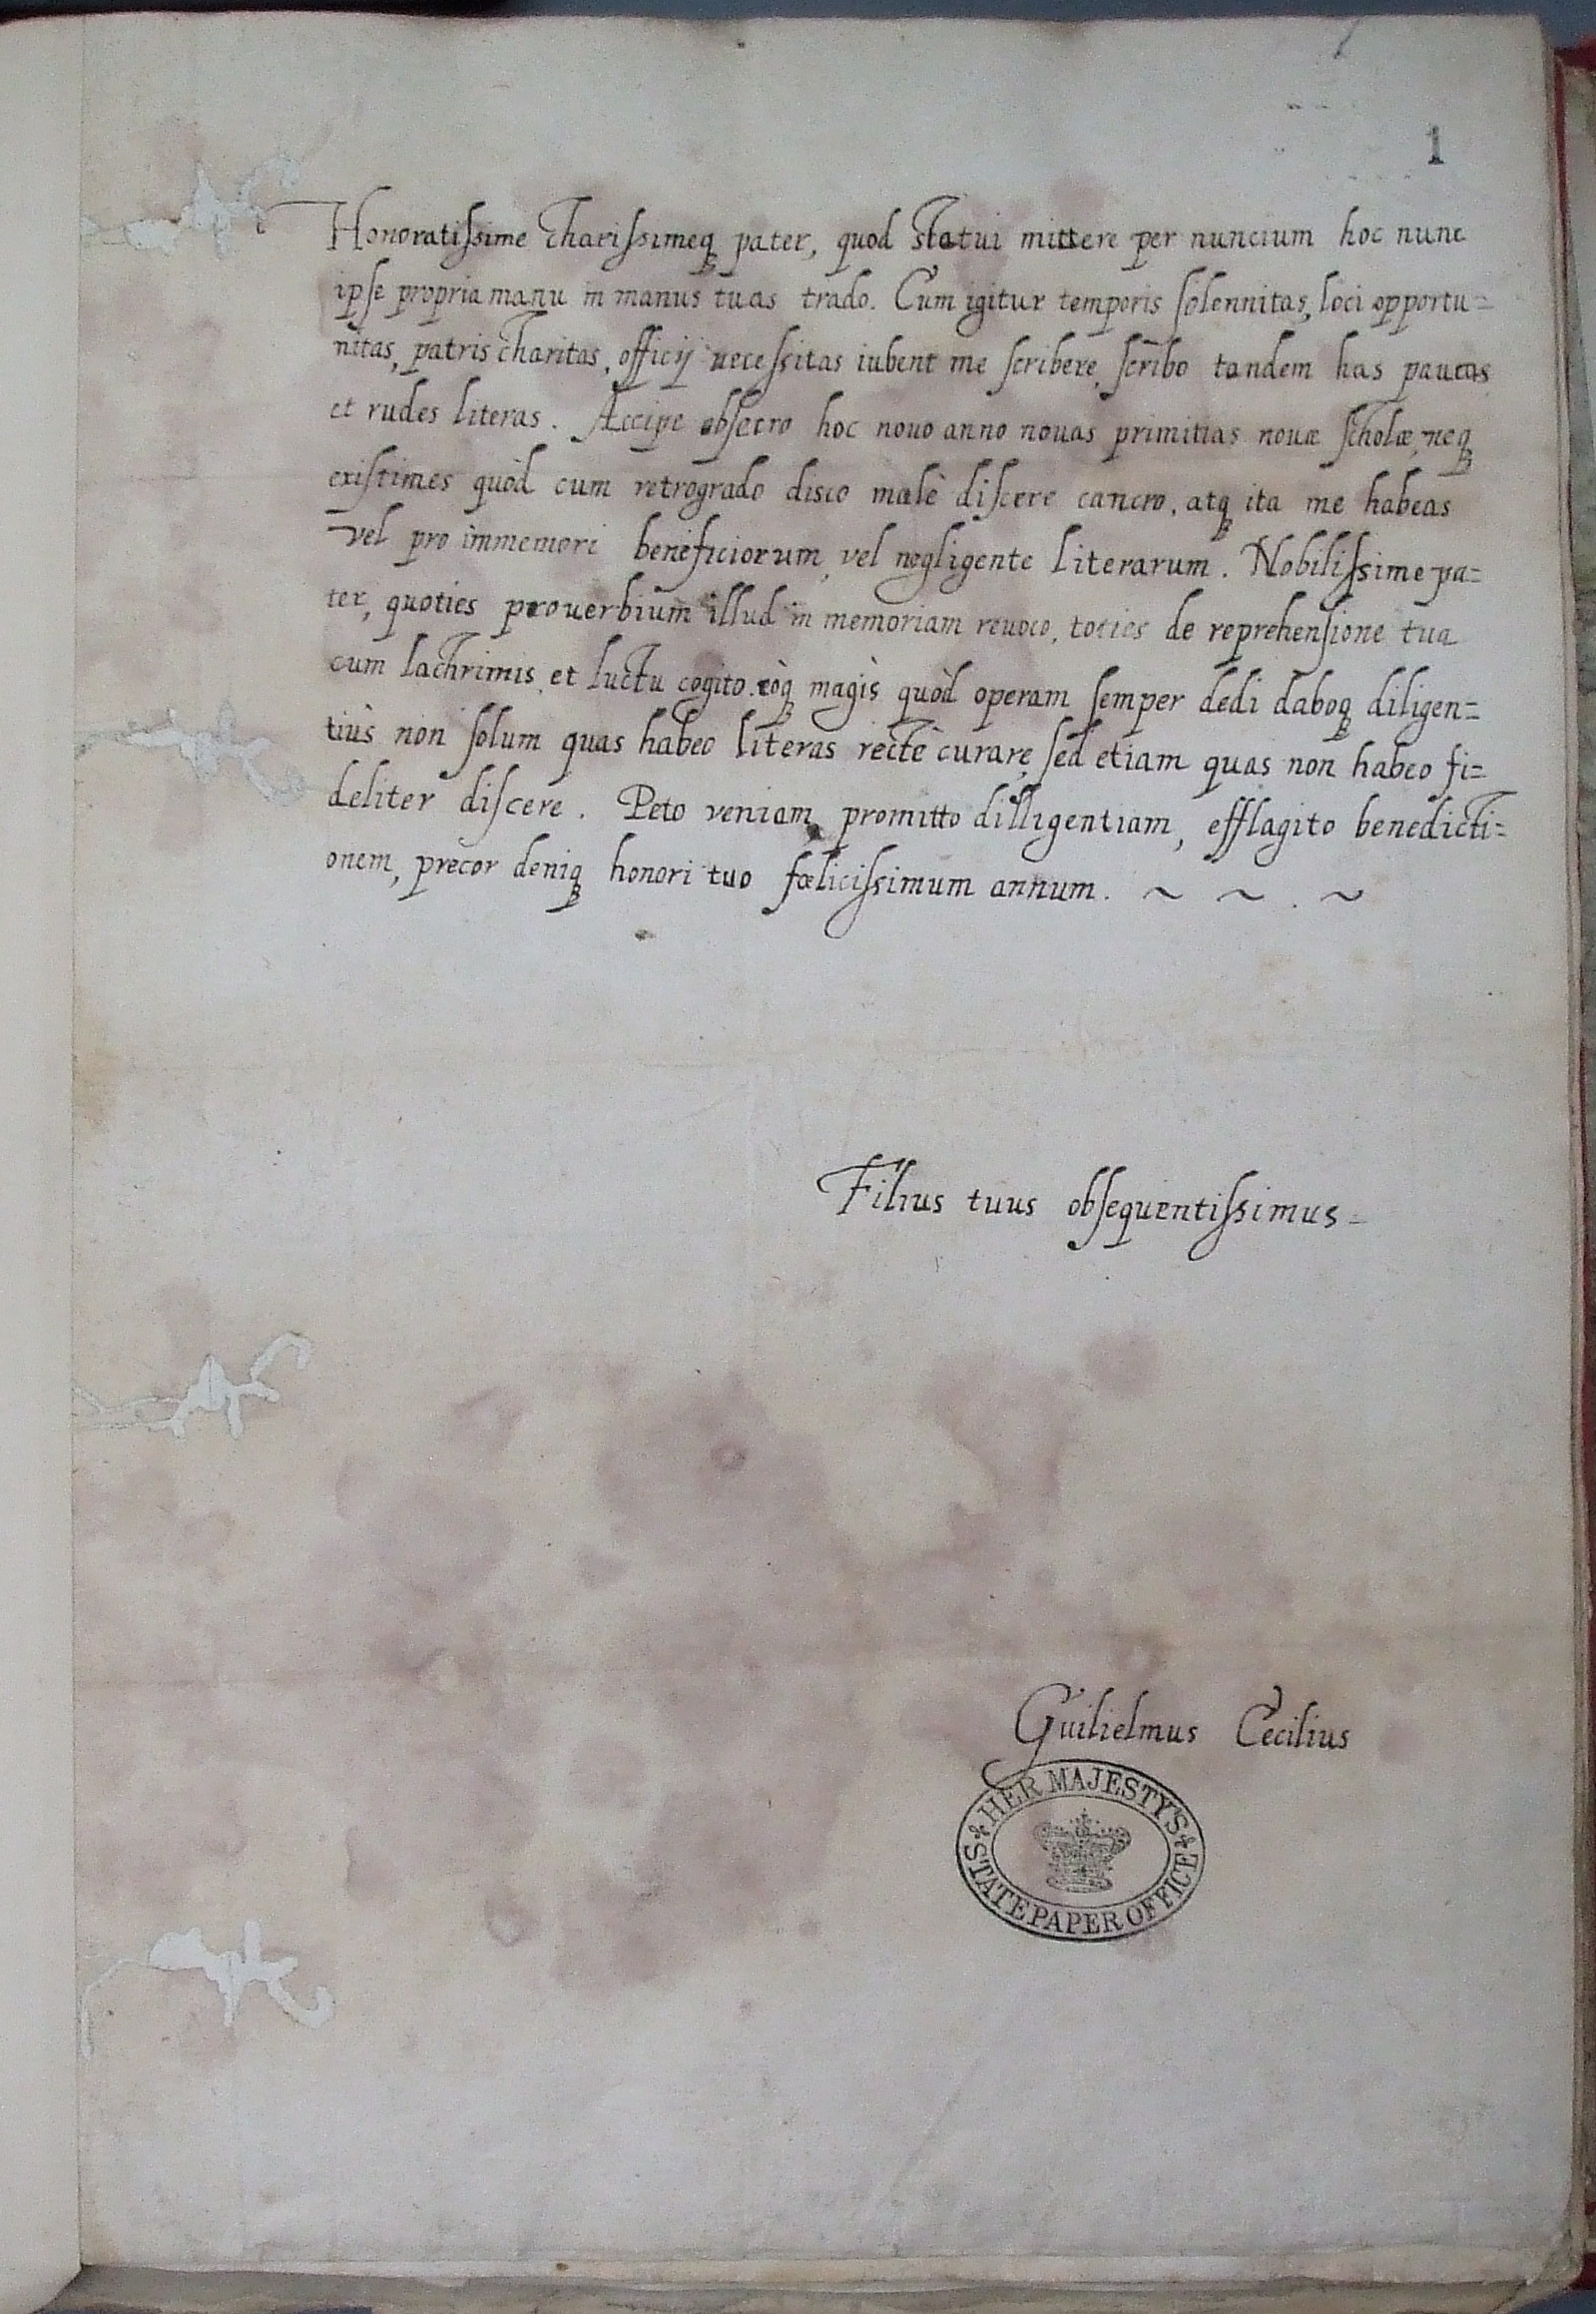 1
Honoratiſsime chariſsimeq; pater, quod statui mittere per nuncium hoc nunc
ipſe propria manu in manus tuas trado. Cum igitur temporis ſolennitas, loci opportu=
nitas, patris charitas, officij neceſsitas iubent me ſcribere, ſcribo tandem has paucas
et rudes literas. Accipe obſecro hoc nouo anno nouas primitias nouæ ſcholæ, neq;
exiſtimes quòd cum retrogrado disco malè diſcere cancro, atq; ita me habeas
vel pro immemori beneficiorum, vel negligente literarum. Nobiliſsime pa=
ter, quoties prouerbium illud in memoriam reuoco, toties de reprehenſione tua
cum lachrimis et luctu cogito. eòq; magìs quòd operam ſemper dedi daboq; diligen=
tiùs non ſolum quas habeo literas rectè curare, ſed etiam quas non habeo fi=
deliter diſcere. Peto veniam, promitto dilligentiam, efflagito benedicti=
onem, precor deniq; honori tuo fœliciſsimum annum. ~ ~ . ~
Filius tuus obſequentiſsimus
Guilielmus Cecilius
HER MAJESTY'S
STATE PAPER OFFICE